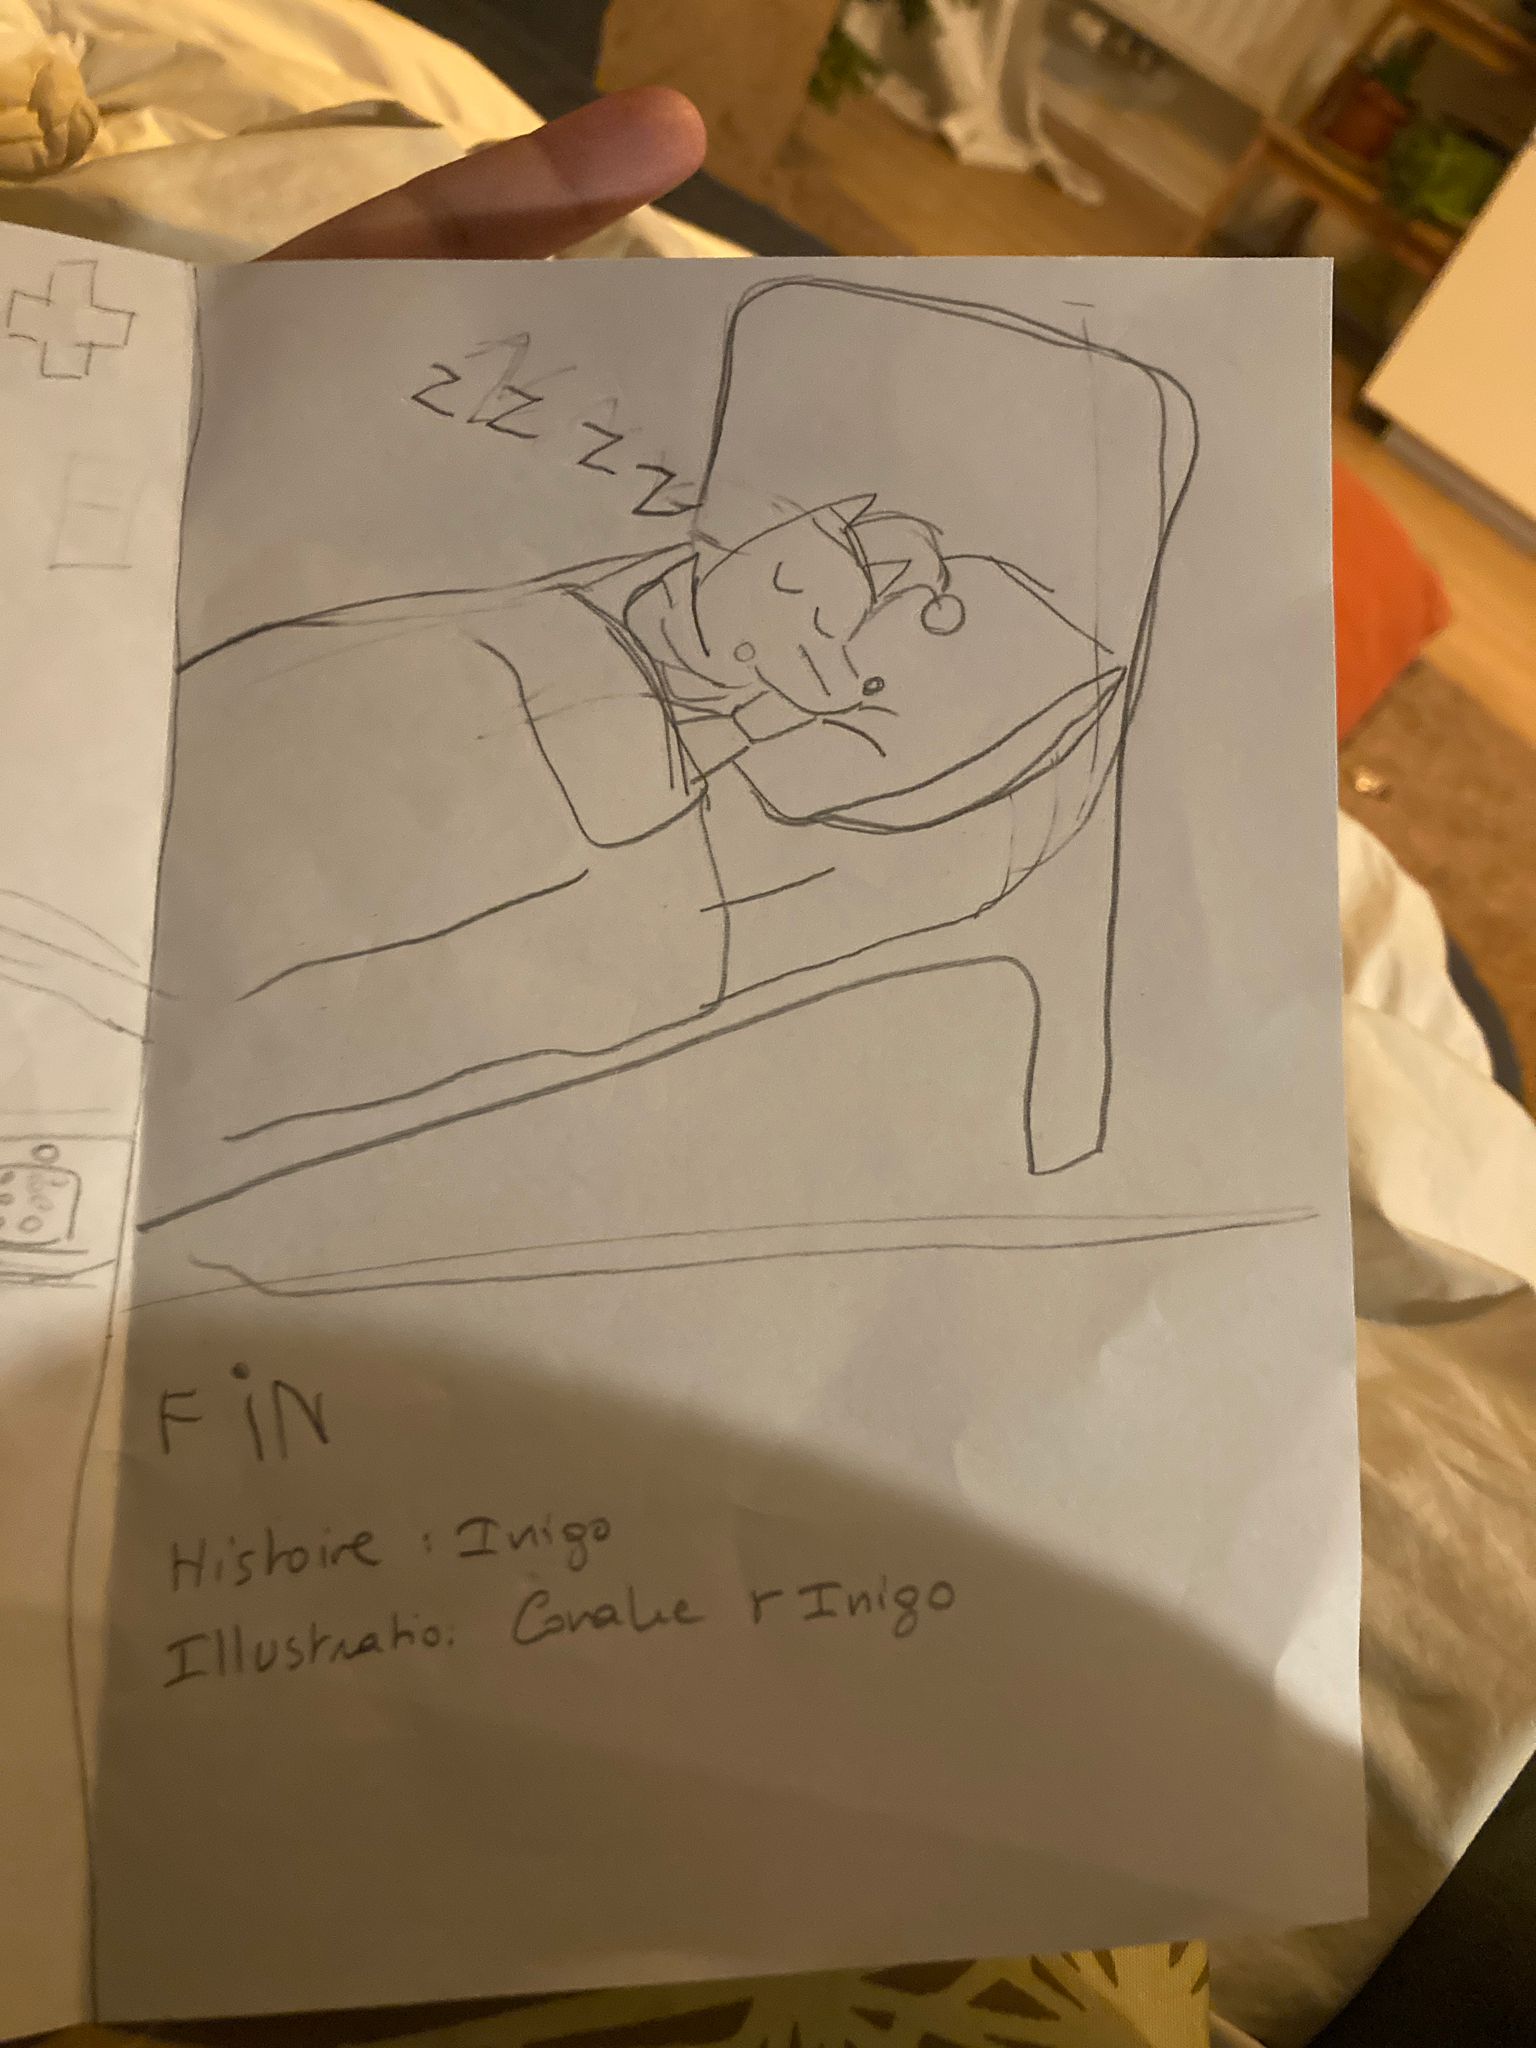 z z z z
FiN
Histoire : Inigo
Illustratio. Coralie & Inigo